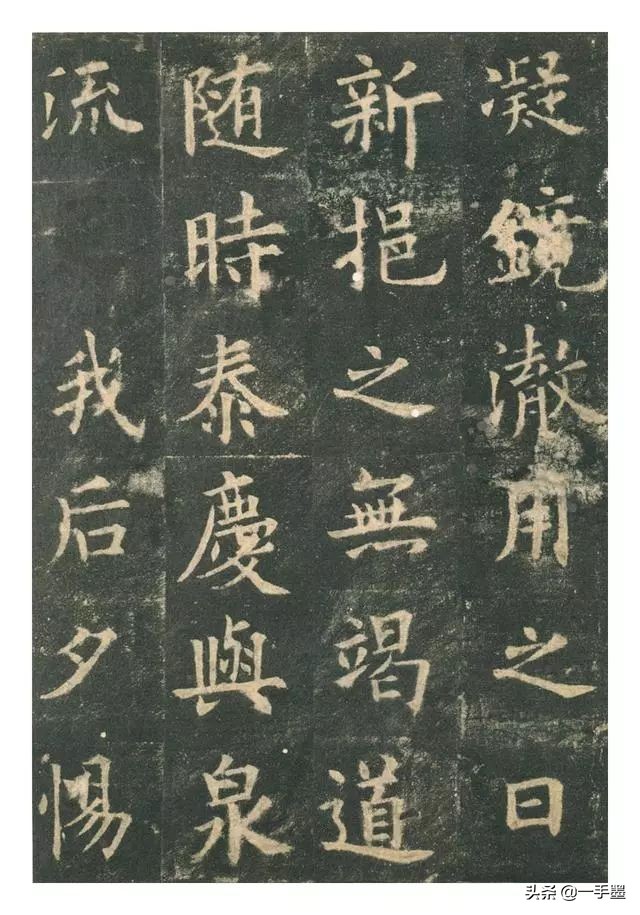 凝鏡澈用之日
新挹之無竭道
随時泰慶與泉
流 我后夕惕
头条 @一手墨